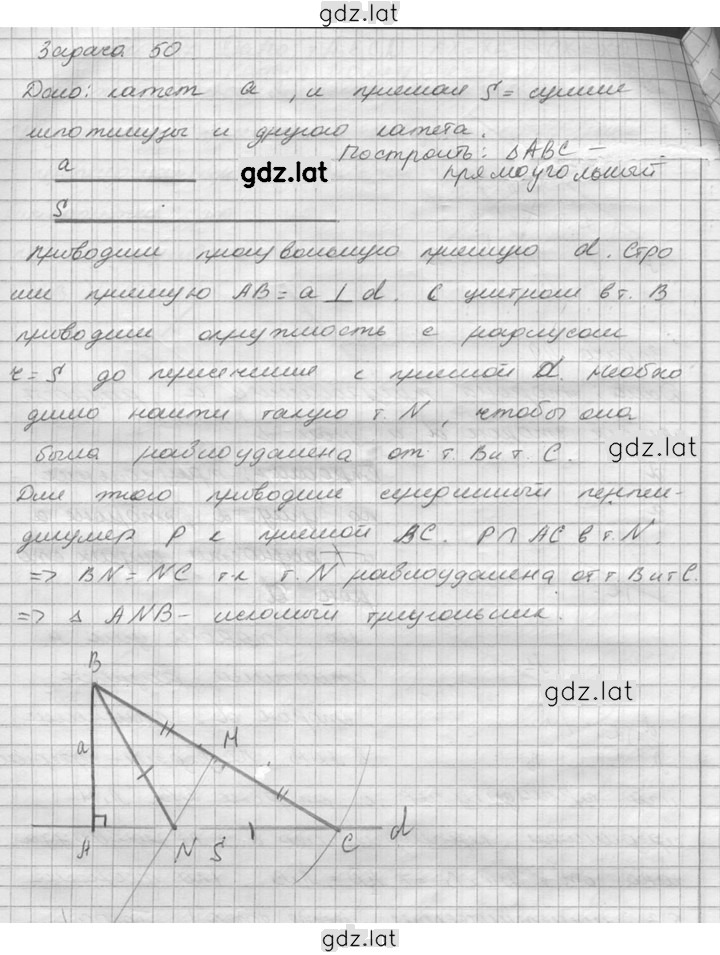 gdz.lat
Задача 50
Дано: катет a, и прямая S = сумме
гипотенузы и другого катета.
Построить: △ABC –
a
gdz.lat
прямоугольный
S
Проводим произвольную прямую d. Стро
им прямую AB = a ⊥ d С центром в т. B
проводим окружность с радиусом
r = S до пересечения с прямой d. Необхо
димо найти такую т. N, чтобы она
была равноудалена от т. B и т. C.
gdz.lat
Для этого проводим серединный перпен-
дикуляр P к прямой BC. P ∩ AC в т. N.
=> BN = NC т.к т. N равноудалена от т. B и т C.
=> △ ANB – искомый треугольник.
B
gdz.lat
a
M
A
N
S
C
d
gdz.lat